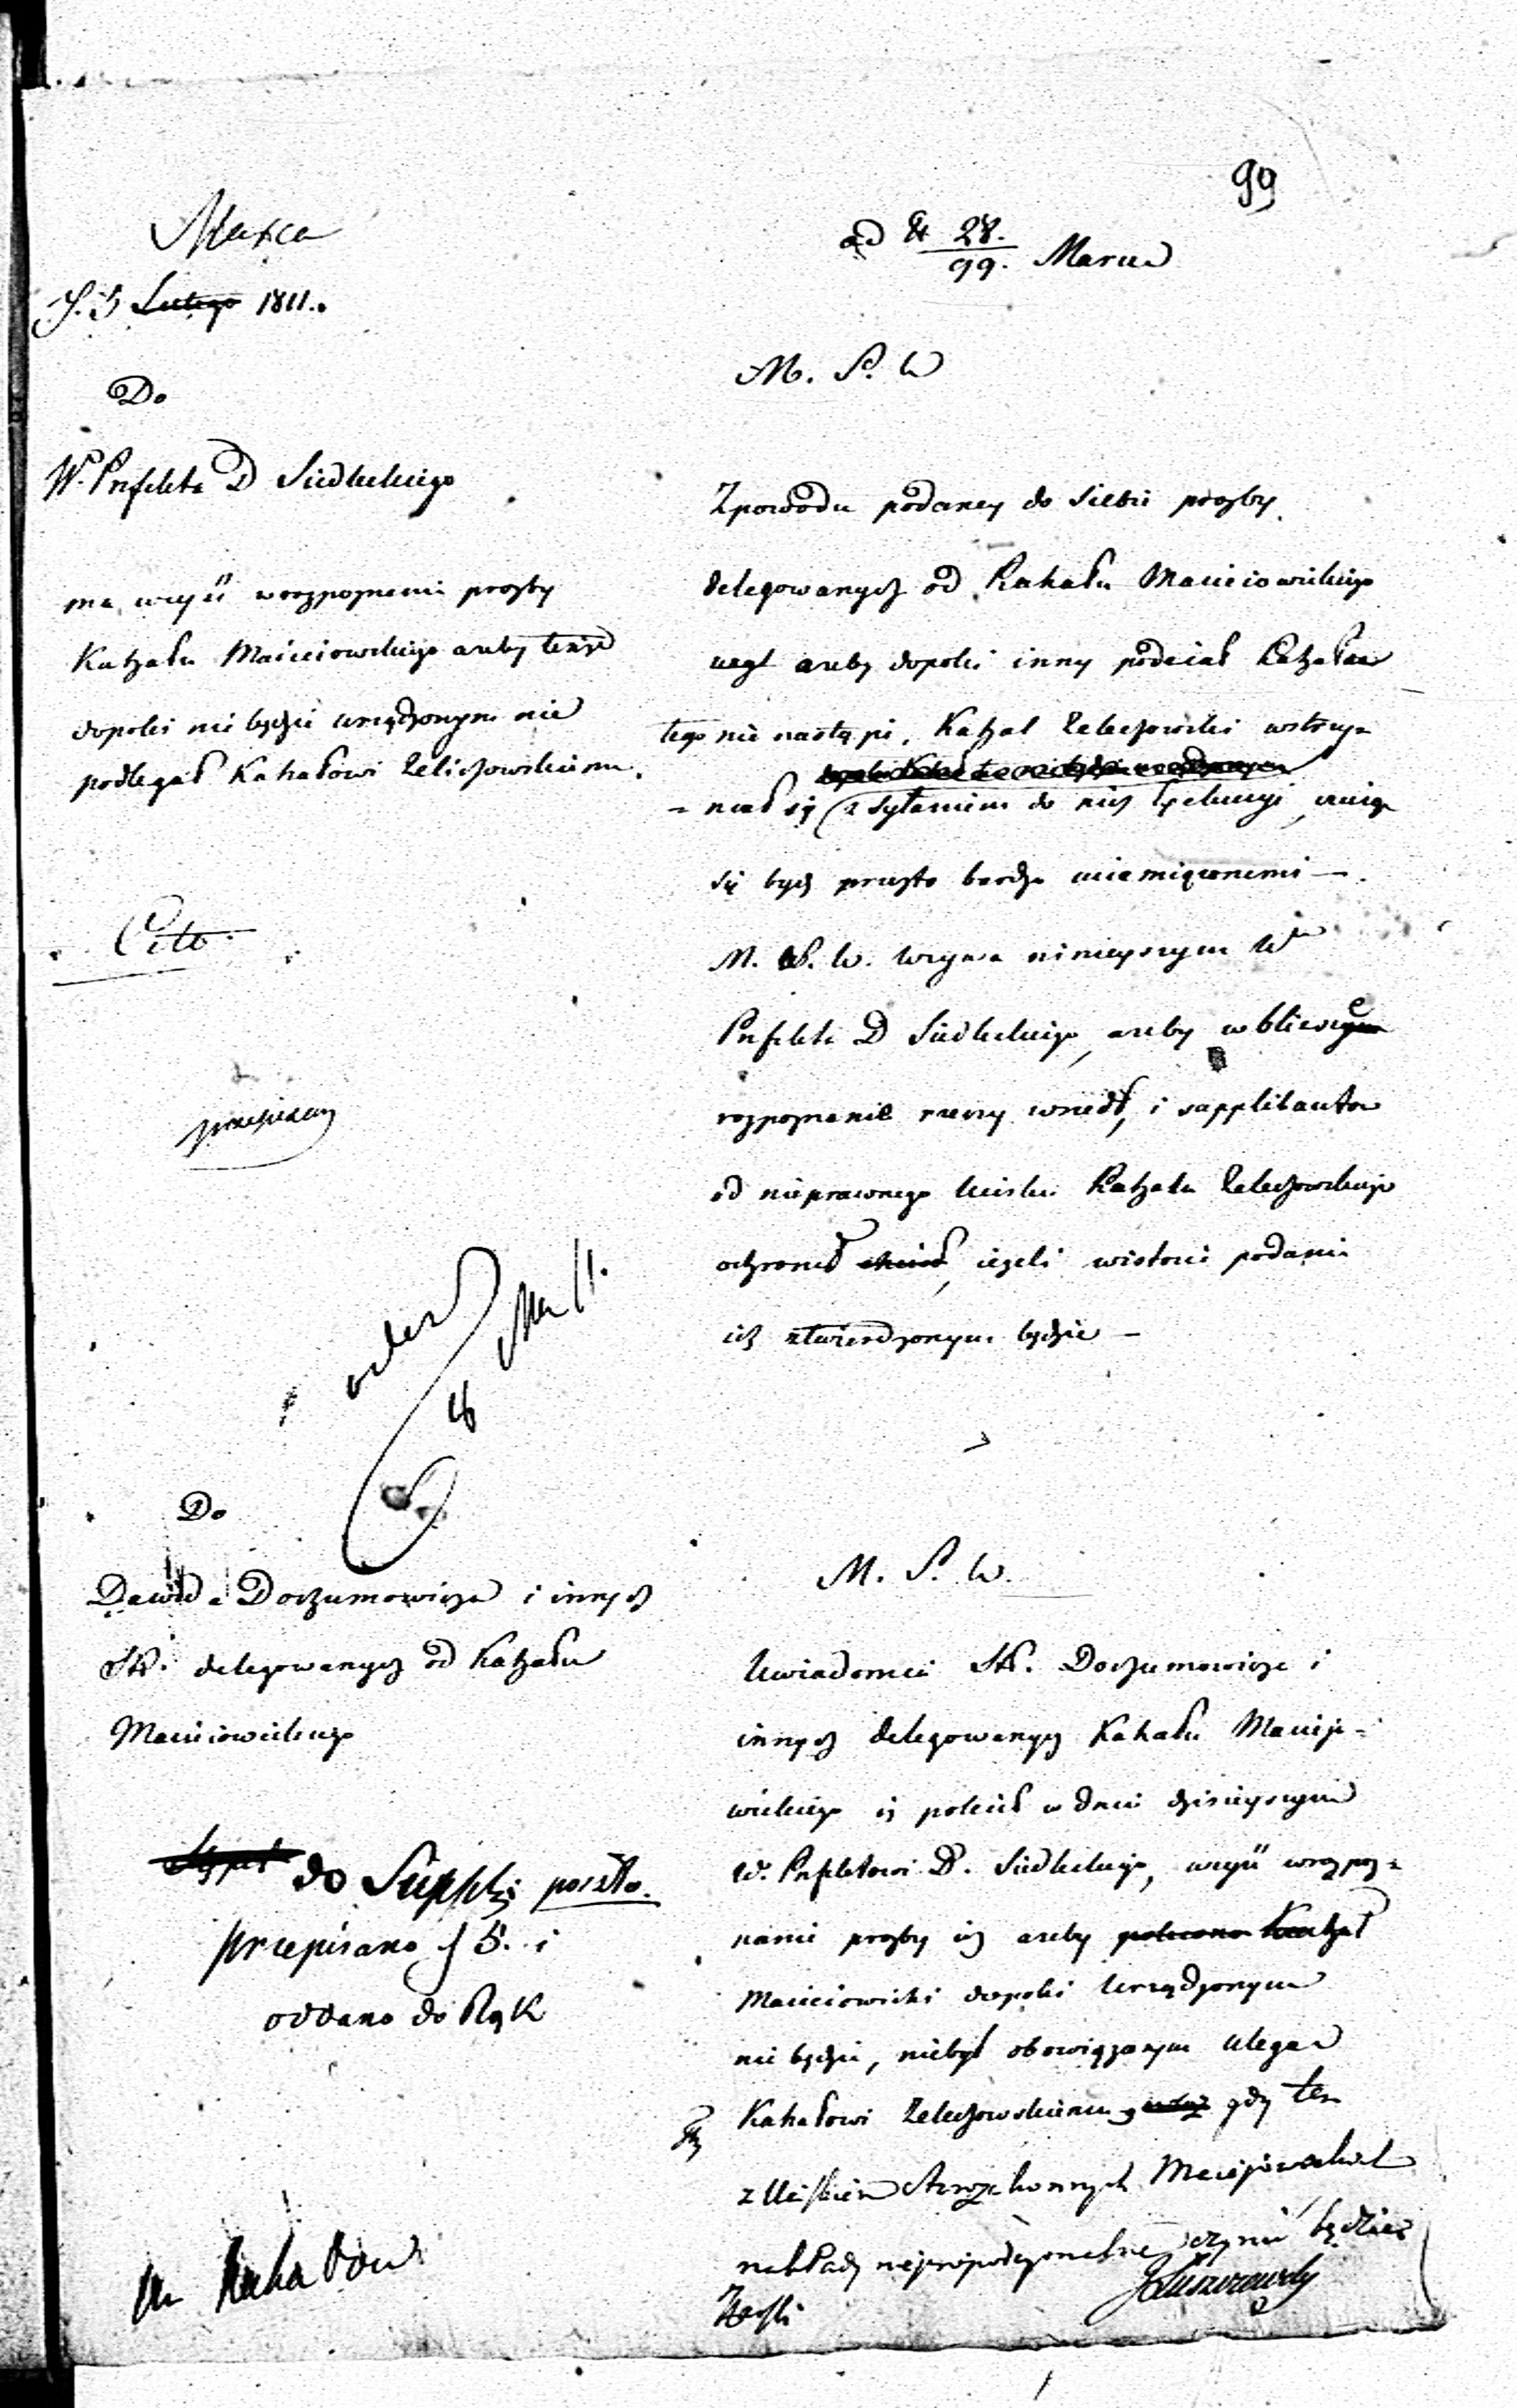 99
Marca
d. 5 Lutego 1811.
Do
W. Prefekta D Siedleckiego
ma wziąć w rozpoznanie prozby
Kahału Maieiowskiego azeby tenże
dopóki nie będzie urządzonym nie
podlegał Kahałowi Zelichowskiemu.
Cito
przepisany
Do
Dawida Dochumowicza i innych
St. delegowanych od Kahału
Macieiowickiego
do Suppli poszło.
przepisano d 5. i
oddano do Rąk
Kahałow
ad N 28./99. Marca
M. S. W
Z powodu podaney do siebie prozby
delegowanych od Kahału Macieiowickiego
azeby dopóki inny podział Kahałów
tego nie nastąpi, Kahał Zelechowski wstrzy=
=mał się z syłaniem do nich exekucyi, mienią
się bydź przezto bardzo uciemiężonemi —
M. S. W. wzywa ninieyszym W
Prefekta D Siedleckiego, azeby w bliższe
rozpoznanie rzeczy wszedł, i supplikantów
od nieprawnego ucisku Kahału Zelechowskiego
ochronił, ieżeli w istocie podanie
ich stwierdzonym będzie —
M. S. W.
Uwiadomia St. Dochumowicza i
innych delegowanych Kahału Macieio=
wickiego iż polecił w dniu dzisieyszym
W. Prefektowi D. Siedleckiego, wziąć w rozpoz=
nanie prozby ich azeby Kahał
Macieiowicki dopóki urządzonym
nie będzie, niebył obowiązanym ulegać
Kahałowi Zelechowskiemu, gdy ten
z uciskiem Starozakonnych Maciejowickich
nakłady nieproporcyonalne czynić będzie